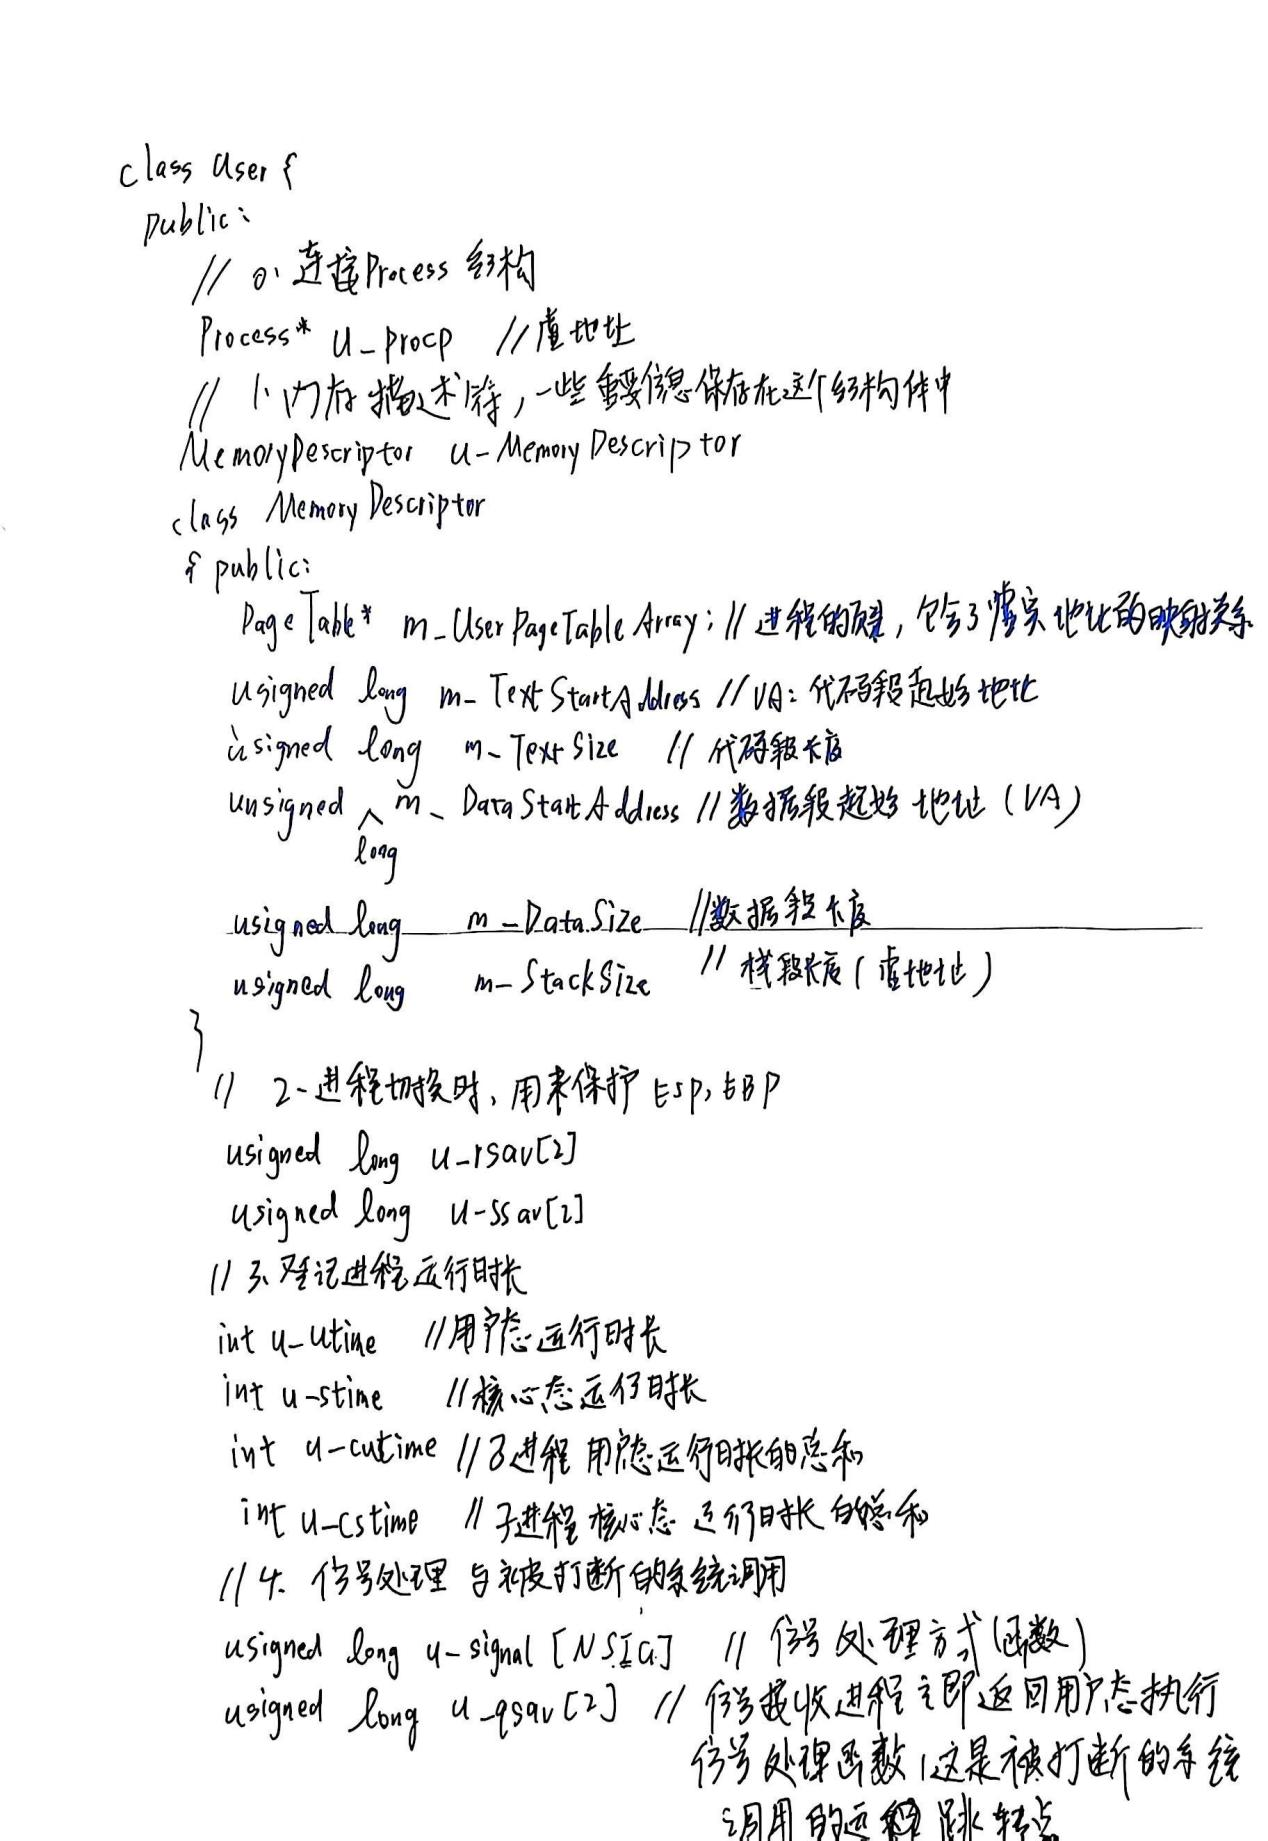 class User {
public:
// 0、连接Process 结构
Process* u_procp //虚地址
// 1、内存描述符，一些重要信息保存在这个结构体中
MemoryDescriptor u-MemoryDescriptor
class MemoryDescriptor
{ public:
PageTable* m_UserPageTableArray; // 进程的页表，包含了虚实地址的映射关系
usigned long m_TextStartAddress // VA: 代码段起始地址
usigned long m_TextSize // 代码段长度
unsigned long m_DataStartAddress // 数据段起始地址 (VA)
usigned long m_DataSize //数据段长度
usigned long m_StackSize // 栈段长度 (虚地址)
}
// 2-进程切换时，用来保护 ESP, EBP
usigned long u_rsav[2]
usigned long u-ssav[2]
// 3、登记进程运行时长
int u_utime //用户态运行时长
int u-stime //核心态运行时长
int u-cutime //子进程 用户态运行时长的总和
int u_cstime // 子进程 核心态 运行时长的总和
// 4、信号处理 与被打断的系统调用
usigned long u-signal [NSIG] // 信号处理方式(函数)
usigned long u_qsav[2] // 信号接收进程立即返回用户态执行
信号处理函数，这是被打断的系统
调用的远程跳转点